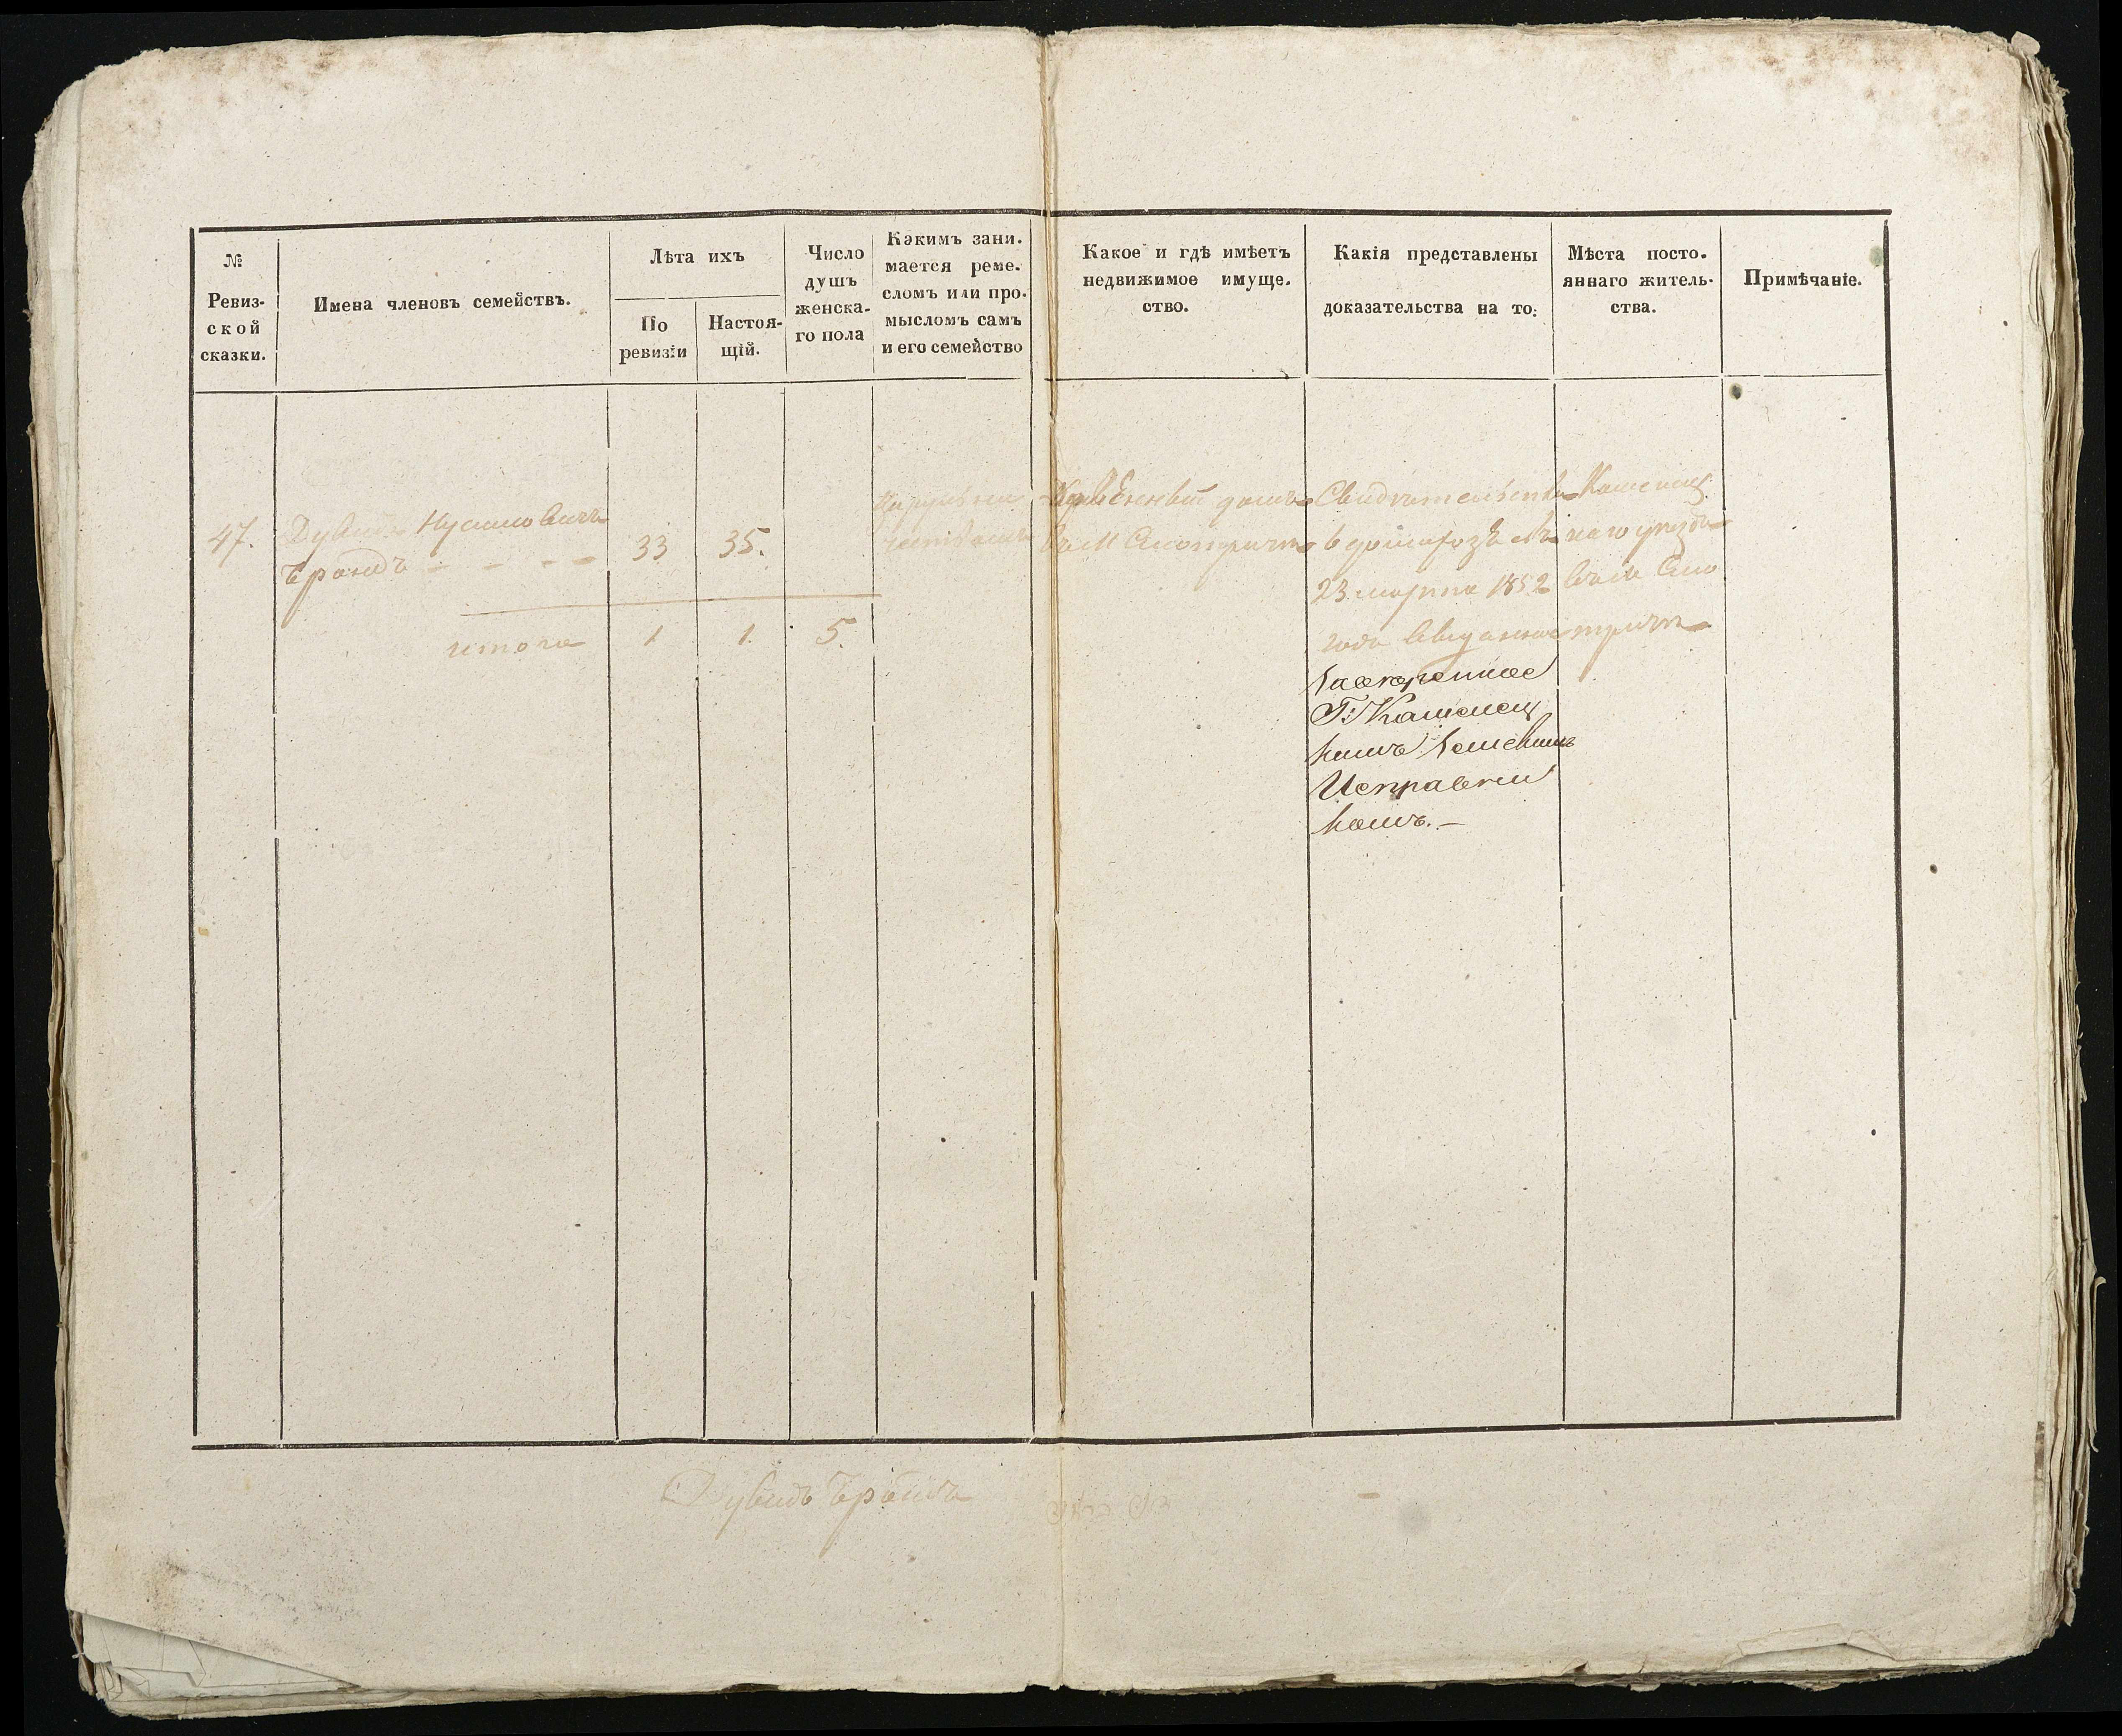 №
Ревиз-
ской
сказки.
Имена членовъ семействъ.
Лѣта ихъ
По
ревизіи
Настоя-
щій.
Число
душъ
женска-
го пола
Какимъ зани.
мается реме.
сломъ или про.
мысломъ самъ
и его семейство
Какое и гдѣ имѣетъ
недвижимое имуще.
ство.
Какія представлены
доказательства на то:
Мѣста посто.
яннаго житель-
ства.
Примѣчаніе.
47.
Дувидъ Нусимовичъ
Брандъ - - - -
33
35.
итого
1
1.
5.
домъ
въ М Смотричѣ
Свидѣтельство
23 марта 1852
года выданное
Г: Каменец
кимъ Земскимъ
Исправни
комъ. -
Каменец
каго уѣзда
въ м Смо
тричѣ
Дувидъ Брандъ